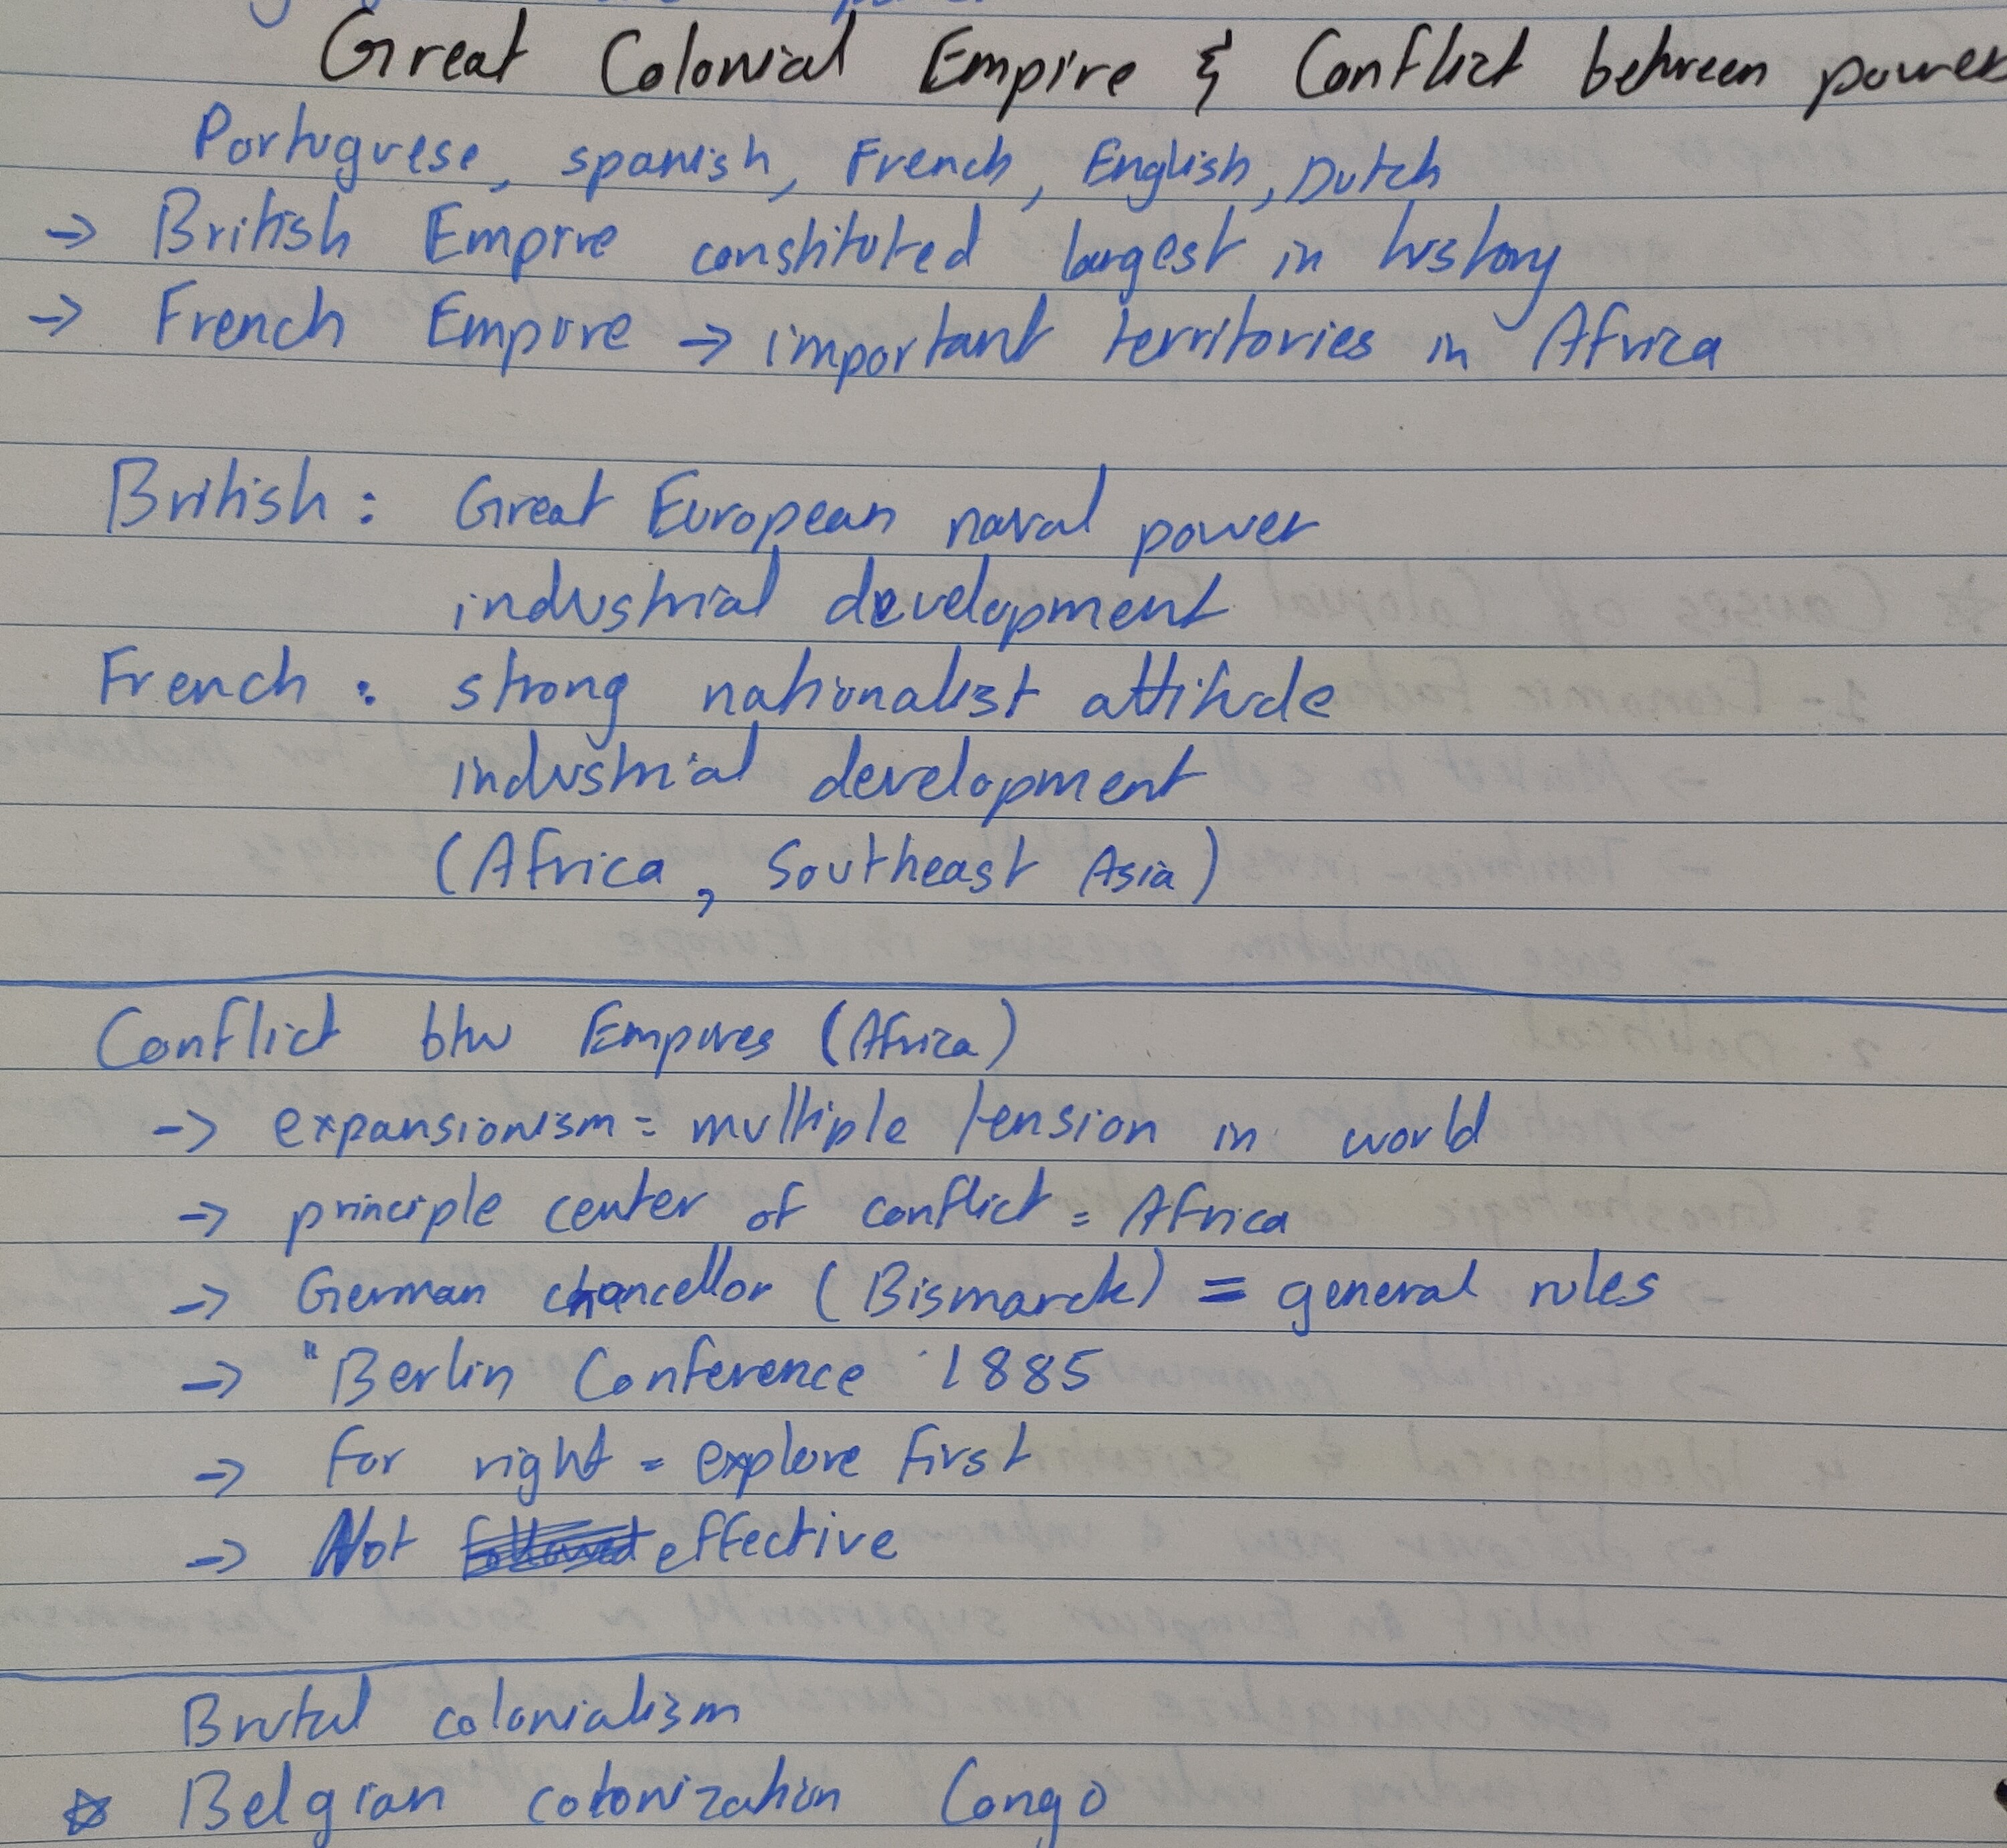 Great Colonial Empire & Conflict between power
Portuguese, spanish, French, English, Dutch
→ British Empire constituted largest in history
→ French Empire → important territories in Africa
British : Great European naval power
industrial development
French : strong nationalist attitude
industrial development
(Africa, Southeast Asia)
Conflict btw Empires (Africa)
→ expansionism = multiple tension in world
→ principle center of conflict = Africa
→ German chancellor (Bismarck) = general rules
→ "Berlin Conference 1885
→ for right = explore first
→ Not effective
Brutal colonialism
☆ Belgian colonization Congo